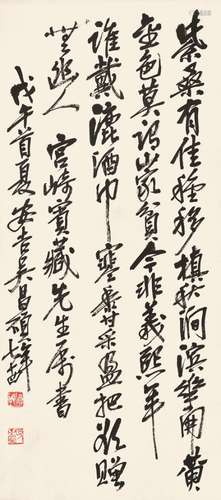 柴桑有佳種移植秋澗濱華開黃
金色莫訝山家貧今非義熙年
誰戴漉酒巾寒香采盈把欲贈
無幽人 宮崎寶藏先生屬書
戊午首夏安吉吳昌碩年七十五